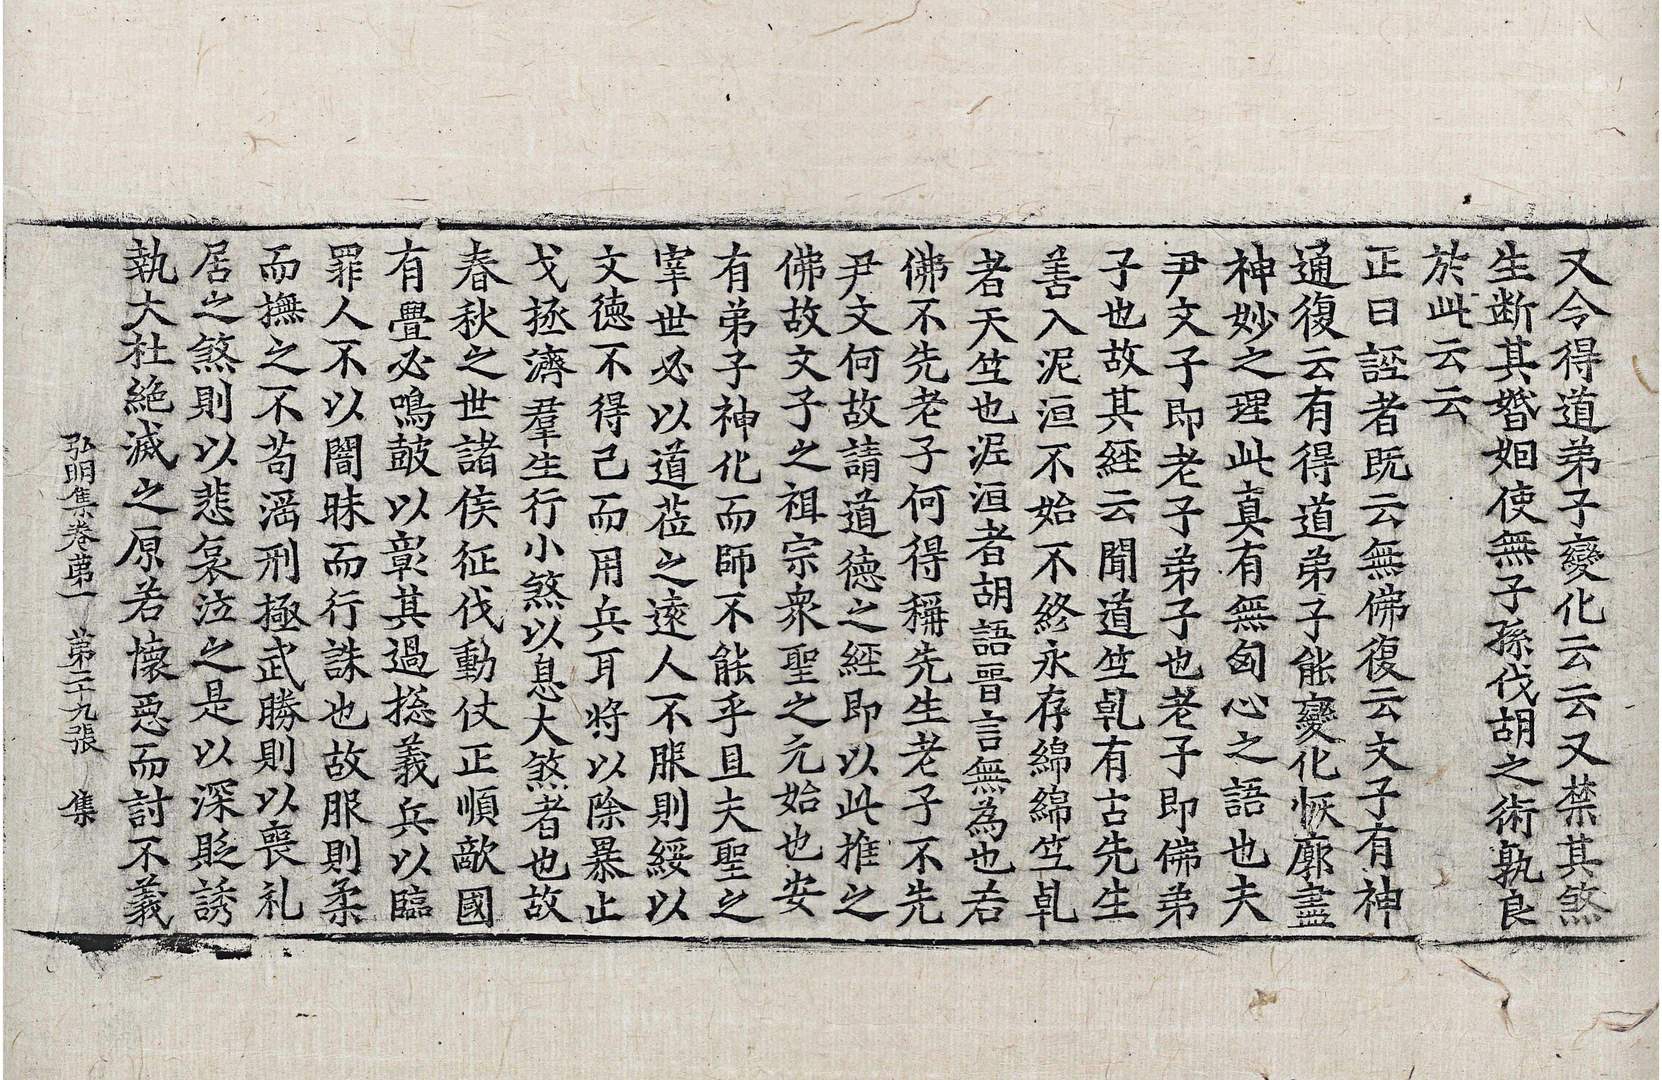 又令得道弟子變化云云又禁其煞
生断其婚姻使無子孫伐胡之術孰良
於此云云
正曰誣者既云無佛復云文子有神
通復云有得道弟子能變化恢廓盡
神妙之理此真有無匈心之語也夫
尹文子即老子弟子也老子即佛弟
子也故其經云聞道竺乹有古先生
善入泥洹不始不終永存綿綿竺乹
者天竺也泥洹者胡語晉言無為也若
佛不先老子何得稱先生老子不先
尹文何故請道德之經即以此推之
佛故文子之祖宗衆聖之元始也安
有弟子神化而師不能乎且夫聖之
宰世必以道莅之遠人不服則綏以
文德不得已而用兵耳将以除暴止
戈拯濟羣生行小煞以息大煞者也故
春秋之世諸侯征伐動仗正順敵國
有舋必鳴皷以彰其過揔義兵以臨
罪人不以闇昧而行誅也故服則柔
而撫之不苟滛刑極武勝則以喪礼
居之煞則以悲哀泣之是以深貶誘
執大杜絶滅之原若懷惡而討不義
弘明集卷苐一 第二十九張 集